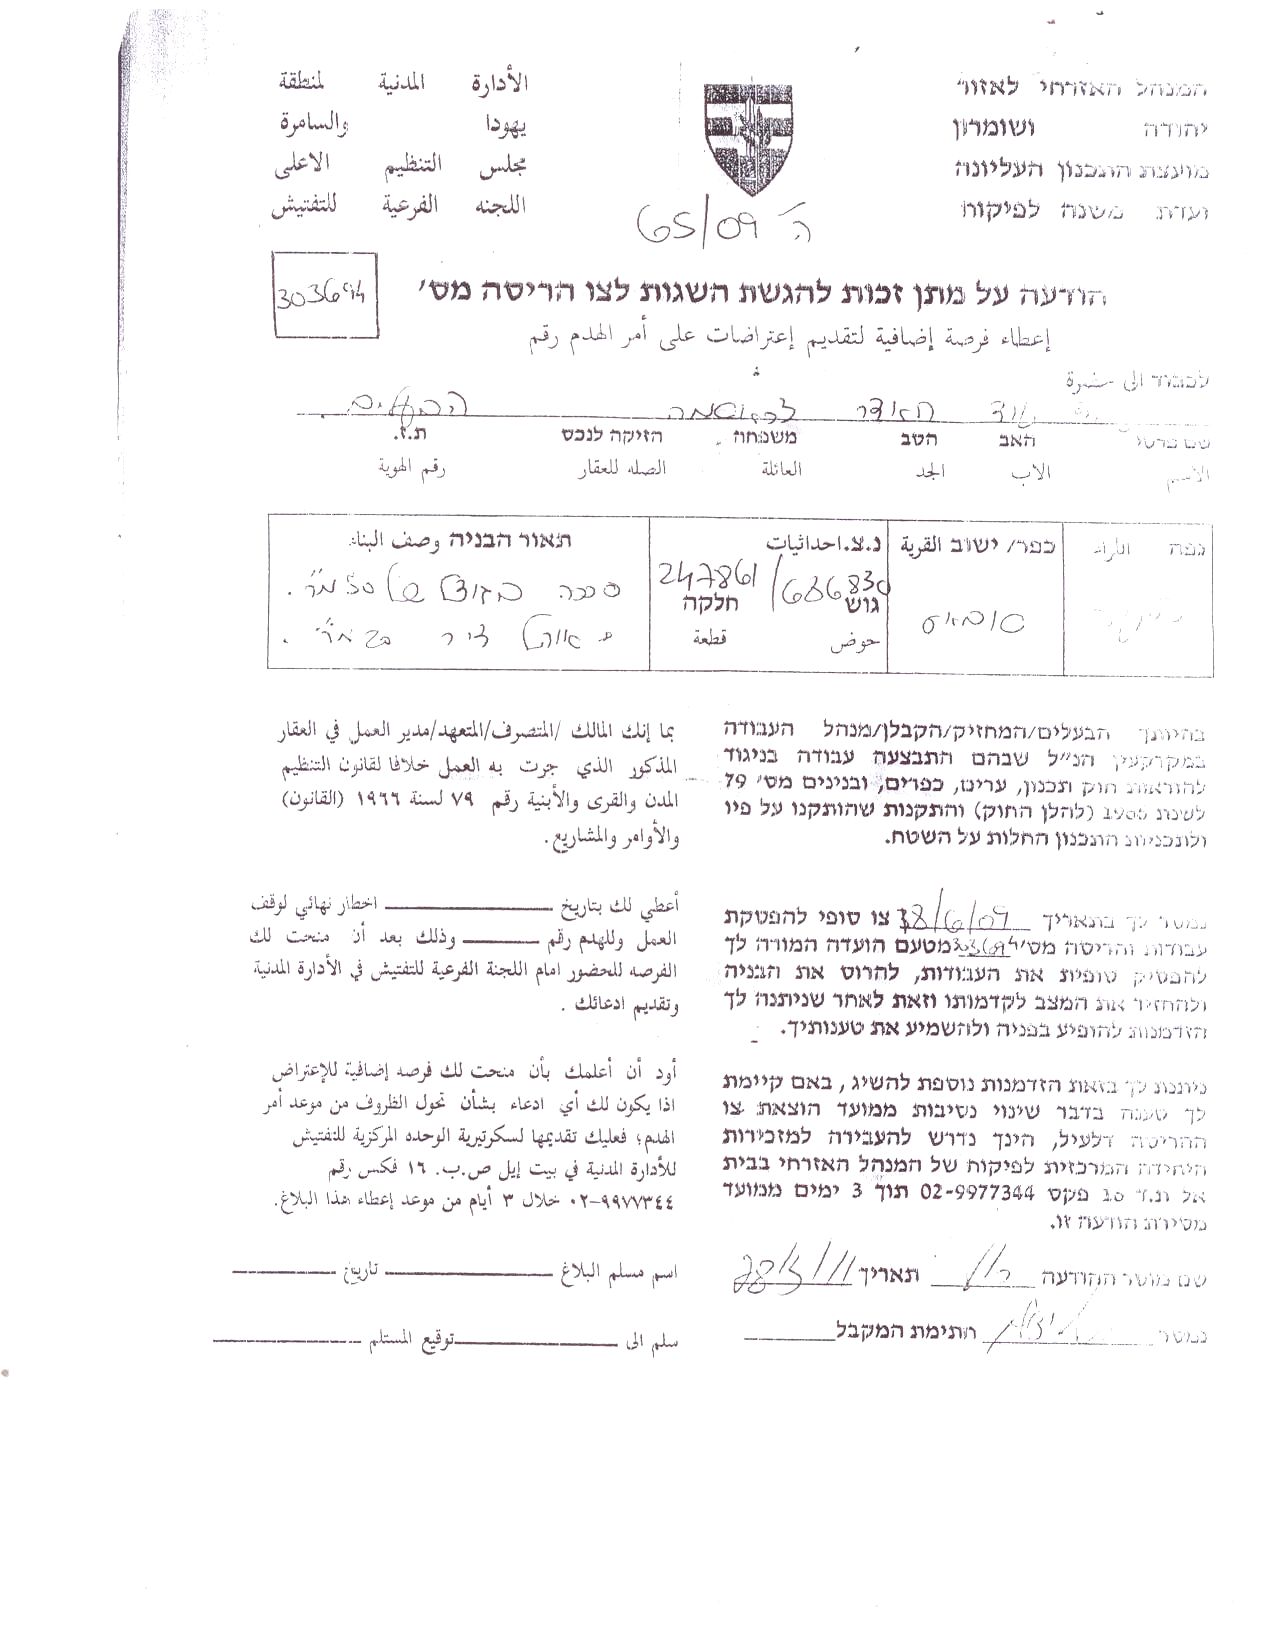 המנהל האזרחי לאזור
יהודה ושומרון
מועצת התכנון העליונה
ועדת משנה לפיקוח
الأدارة المدنية لمنطقة
يهودا والسامرة
مجلس التنظيم الاعلى
اللجنه الفرعية للتفتيش
ה 65/09
הודעה על מתן זכות להגשת השגות לצו הריסה מס׳
303694
إعطاء فرصة إضافية لتقديم إعتراضات على أمر الهدم رقم
לכבוד الى حضرة
שם פרטי האב הסב משפחה הזיקה לנכס ת.ז.
الأسم الاب الجد العائلة الصله للعقار رقم الهوية
נפה اللواء כפר/ ישוב القرية נ.צ.احداثيات תאור הבניה وصف البناء
247861/686830
גוש חלקה
حوض قطعة
בהיותך הבעלים/המחזיק/הקבלן/מנהל העבודה
במקרקעין הנ״ל שבהם התבצעה עבודה בניגוד
להוראות חוק תכנון, ערים, כפרים, ובנינים מס׳ 79
לשנת 1966 (להלן החוק) והתקנות שהותקנו על פיו
ולתכניות התכנון החלות על השטח.
بما إنك المالك /المتصرف/المتعهد/مدير العمل في العقار
المذكور الذي جرت به العمل خلافا لقانون التنظيم
المدن والقرى والأبنية رقم ٧٩ لسنة ١٩٦٦ (القانون)
والأوامر والمشاريع.
נמסר לך בתאריך 18/6/09 צו סופי להפסקת
עבודות והריסה מס׳ 303694 מטעם הועדה המורה לך
להפסיק סופית את העבודות, להרוס את הבניה
ולהחזיר את המצב לקדמותו וזאת לאחר שניתנה לך
הזדמנות להופיע בפניה ולהשמיע את טענותיך.
أعطي لك بتاريخ اخطار نهائي لوقف
العمل وللهدم رقم وذلك بعد أن منحت لك
الفرصه للحضور امام اللجنة الفرعية للتفتيش في الأدارة المدنية
وتقديم ادعائك .
ניתנת לך בזאת הזדמנות נוספת להשיג , באם קיימת
לך טענה בדבר שינוי נסיבות ממועד הוצאת צו
ההריסה דלעיל, הינך נדרש להעבירה למזכירות
היחידה המרכזית לפיקוח של המנהל האזרחי בבית
אל ת.ד 16 פקס 02-9977344 תוך 3 ימים ממועד
מסירת הודעה זו.
أود أن أعلمك بأن منحت لك فرصه إضافية للإعتراض
اذا يكون لك أي ادعاء بشأن تحول الظروف من موعد أمر
الهدم؛ فعليك تقديمها لسكرتيرية الوحده المركزية للتفتيش
للأدارة المدنية في بيت إيل ص.ب. ١٦ فكس رقم
٠٢-٩٩٧٧٣٤٤ خلال ٣ أيام من موعد إعطاء هذا البلاغ.
שם מוסר ההודעה תאריך 28/3/11
נמסר חתימת המקבל
اسم مسلم البلاغ تاريخ
سلم الى توقيع المستلم